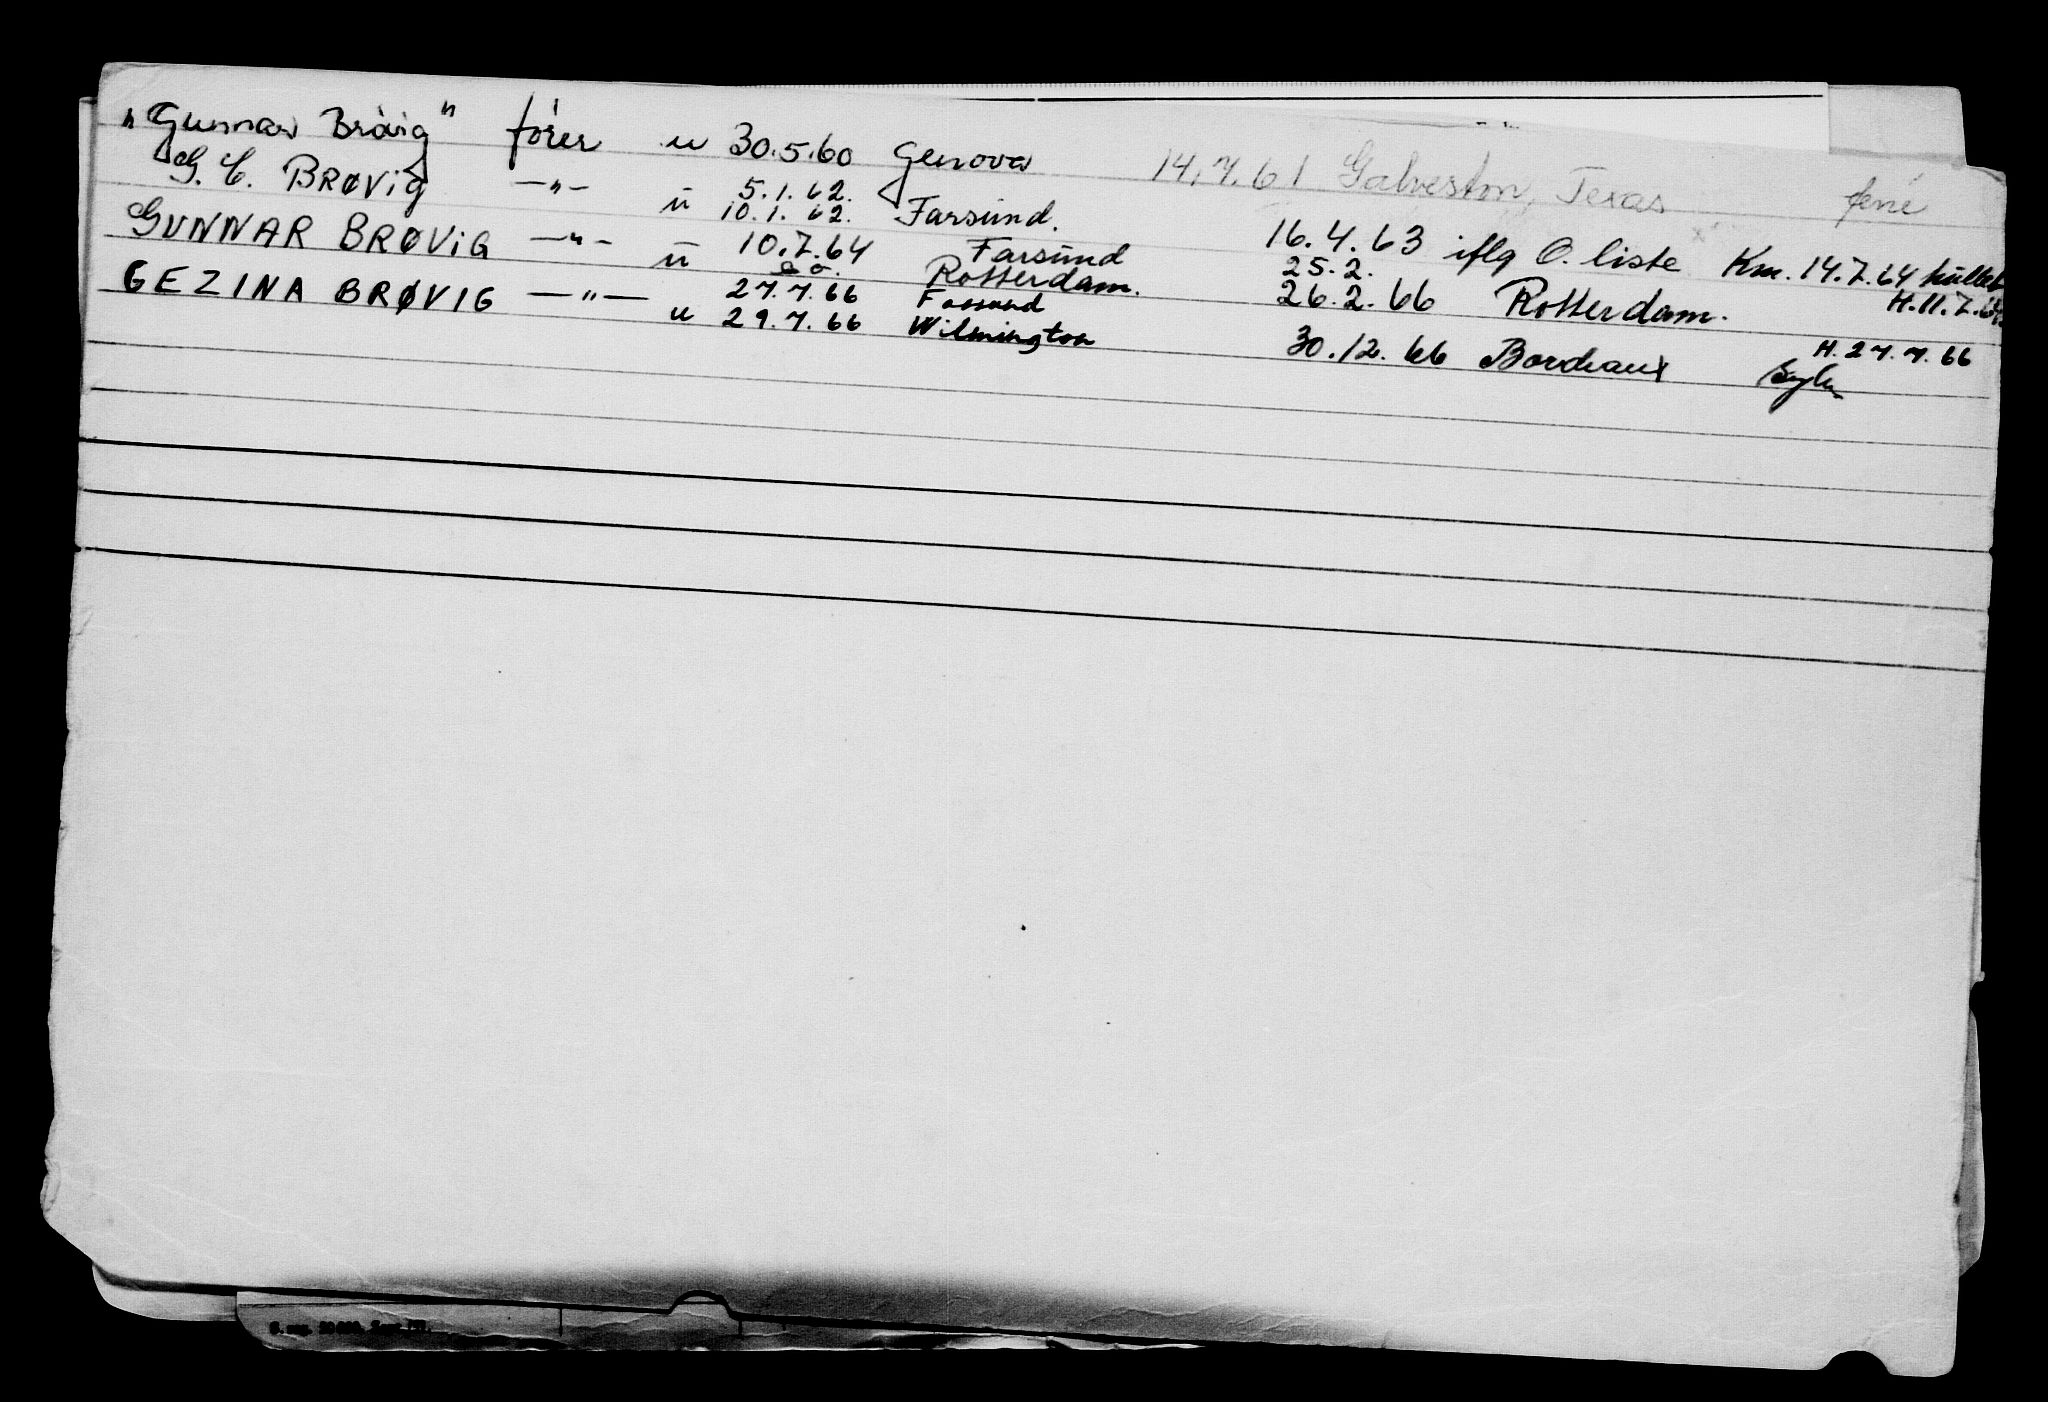 "Gunnar Brøvig" fører u 30.5.60 Genova 14.7.61 Galveston, Texas ferie
G. C. BRØViG —"— u 5.1.62. 10.1.62. Farsund. 16.4.63 iflg O. liste Km. 14.7.64 kullet
GUNNAR BRØViG —"— u 10.7.64 Farsund Rotterdam. 25.2. 26.2.66 Rotterdam. H.11.7.64
GEZINA BRØVIG —"— u 27.7.66 Farsund 29.7.66 Wilmington 30.12.66 Bordeaux H. 27.7.66